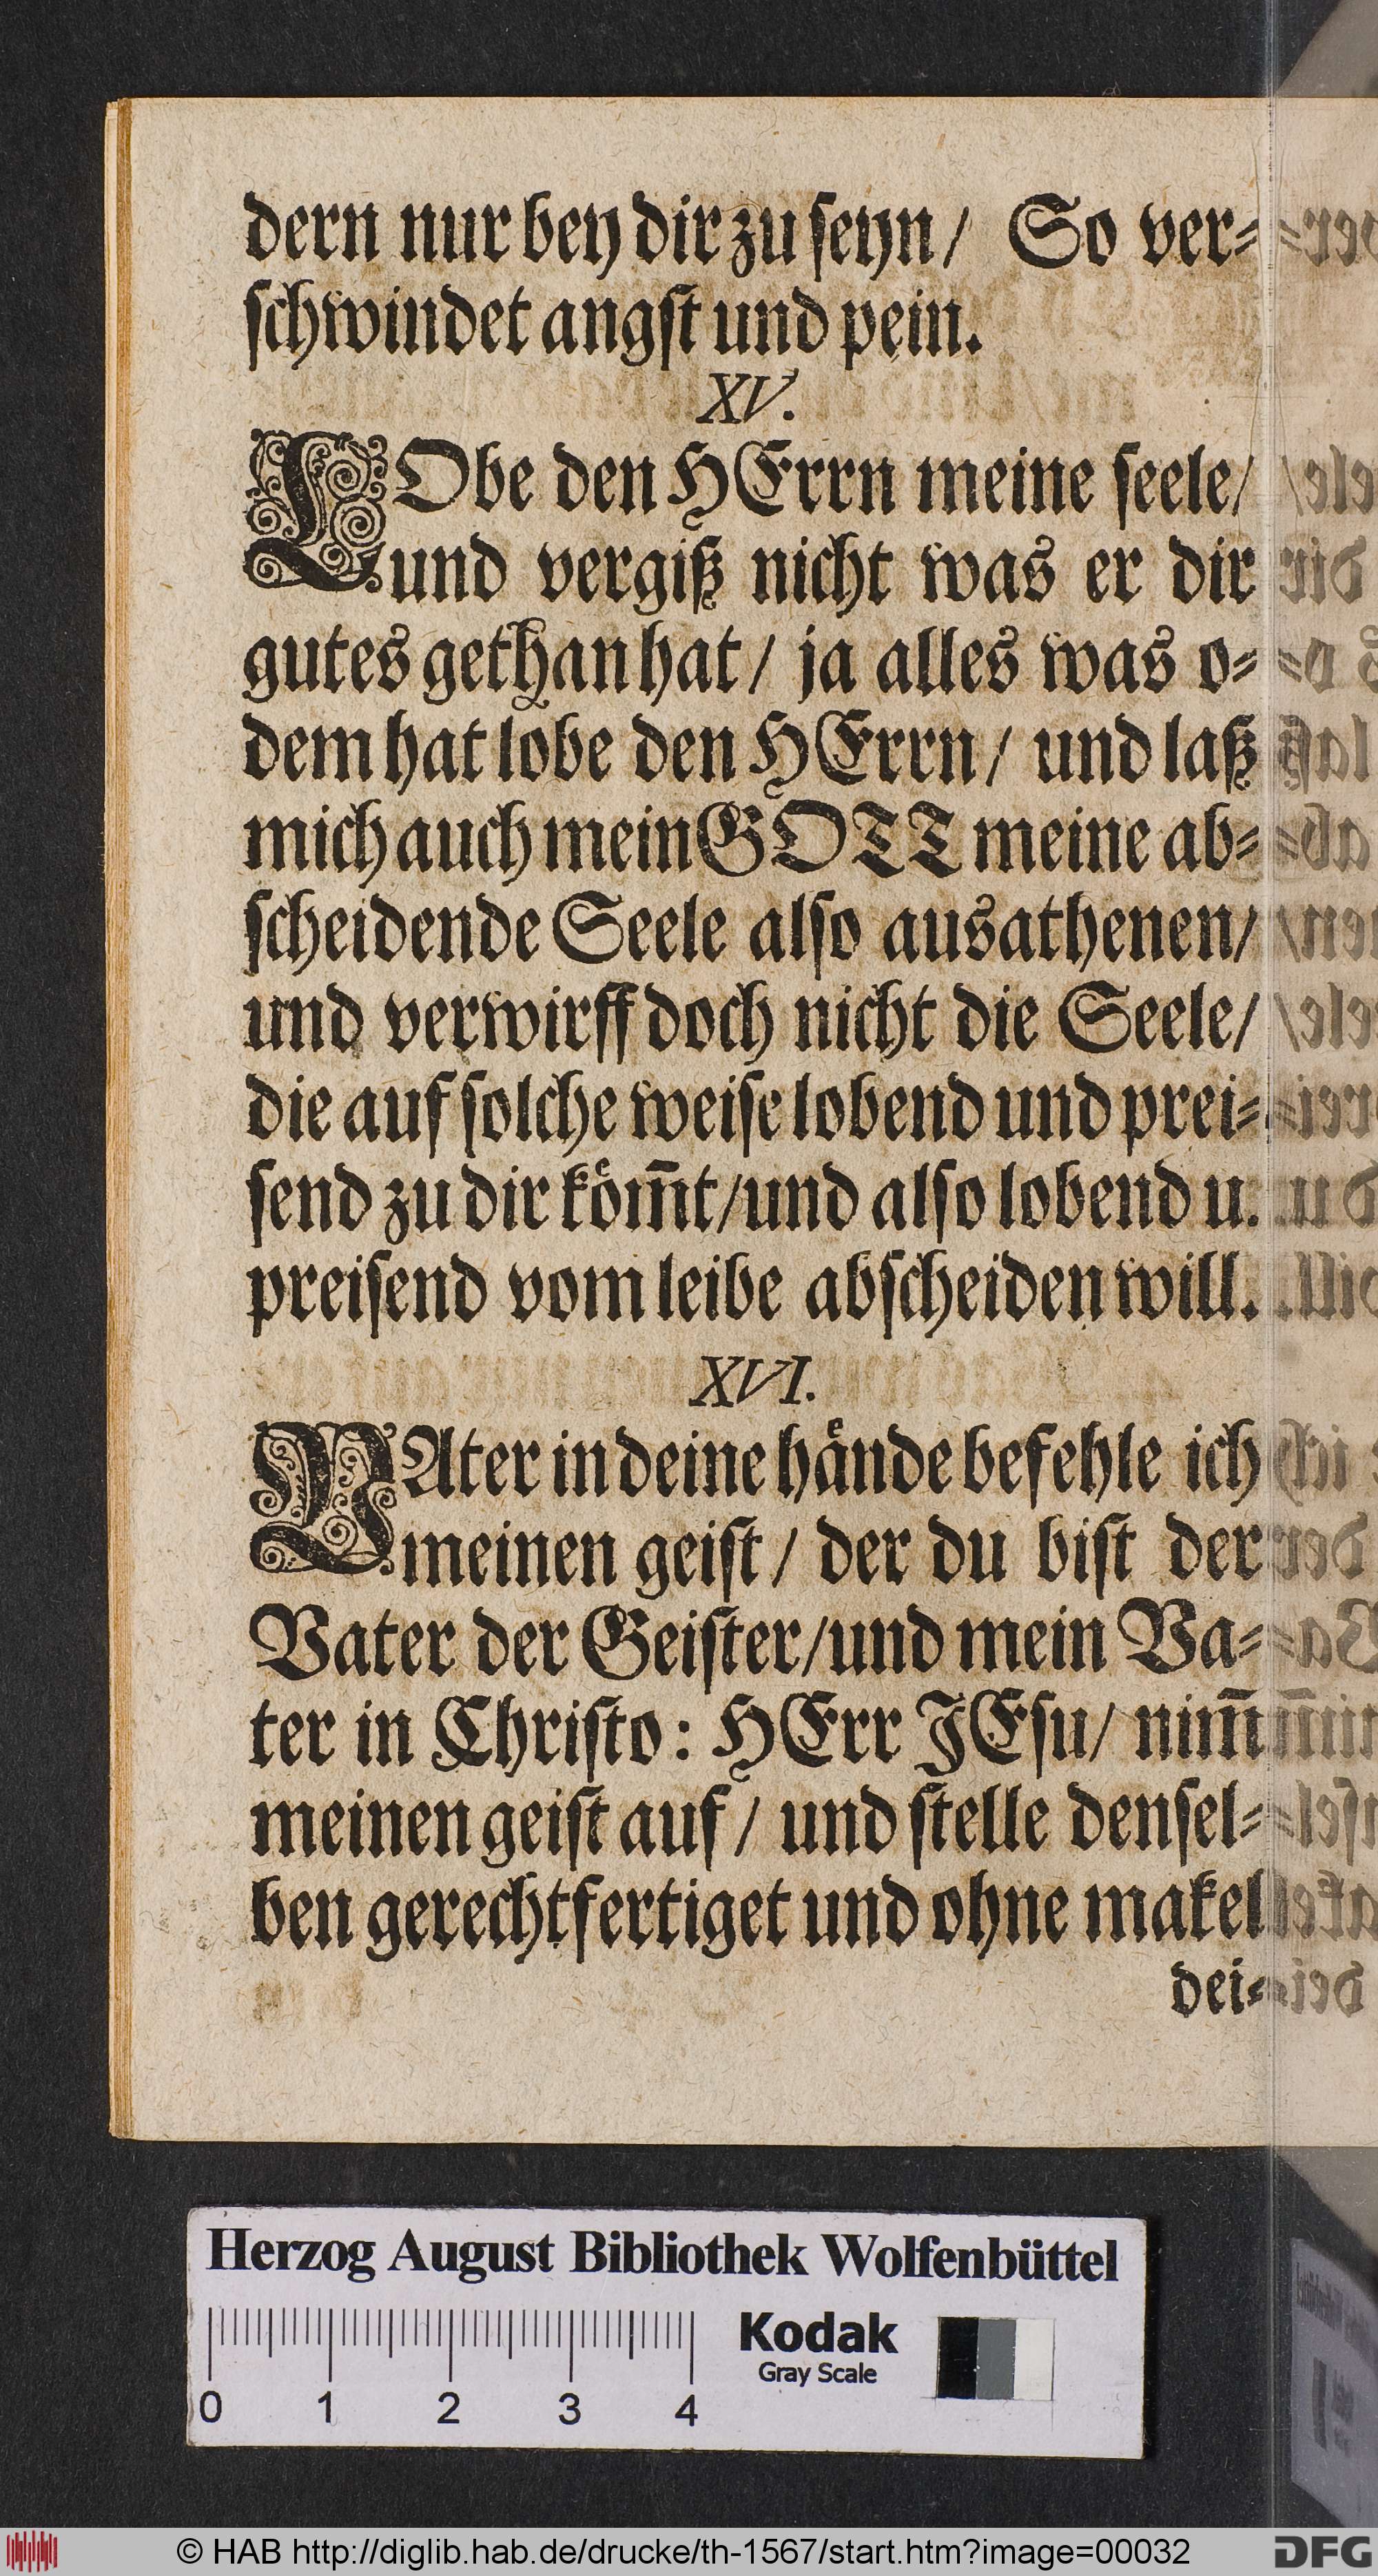 dern nur bey dir zu seyn / So ver-
schwindet angst und pein.
XV.
LObe den HErrn meine seele/
und vergiß nicht was er dir
gutes gethan hat / ja alles was o-
dem hat lobe den HErrn / und laß
mich auch mein GOTT meine ab-
scheidende Seele also ausathenen/
und verwirff doch nicht die Seele/
die auf solche weise lobend und prei-
send zu dir köm̃t/und also lobend u.
preisend vom leibe abscheiden will.
XVI.
VAter in deine hände befehle ich
meinen geist / der du bist der
Vater der Geister/und mein Va-
ter in Christo: HErr JEsu/ nim̃
meinen geist auf / und stelle densel-
ben gerechtfertiget und ohne makel
dei-
Herzog August Bibliothek Wolfenbüttel
Kodak
Gray Scale
0 1 2 3 4
© HAB http://diglib.hab.de/drucke/th-1567/start.htm?image=00032
DFG